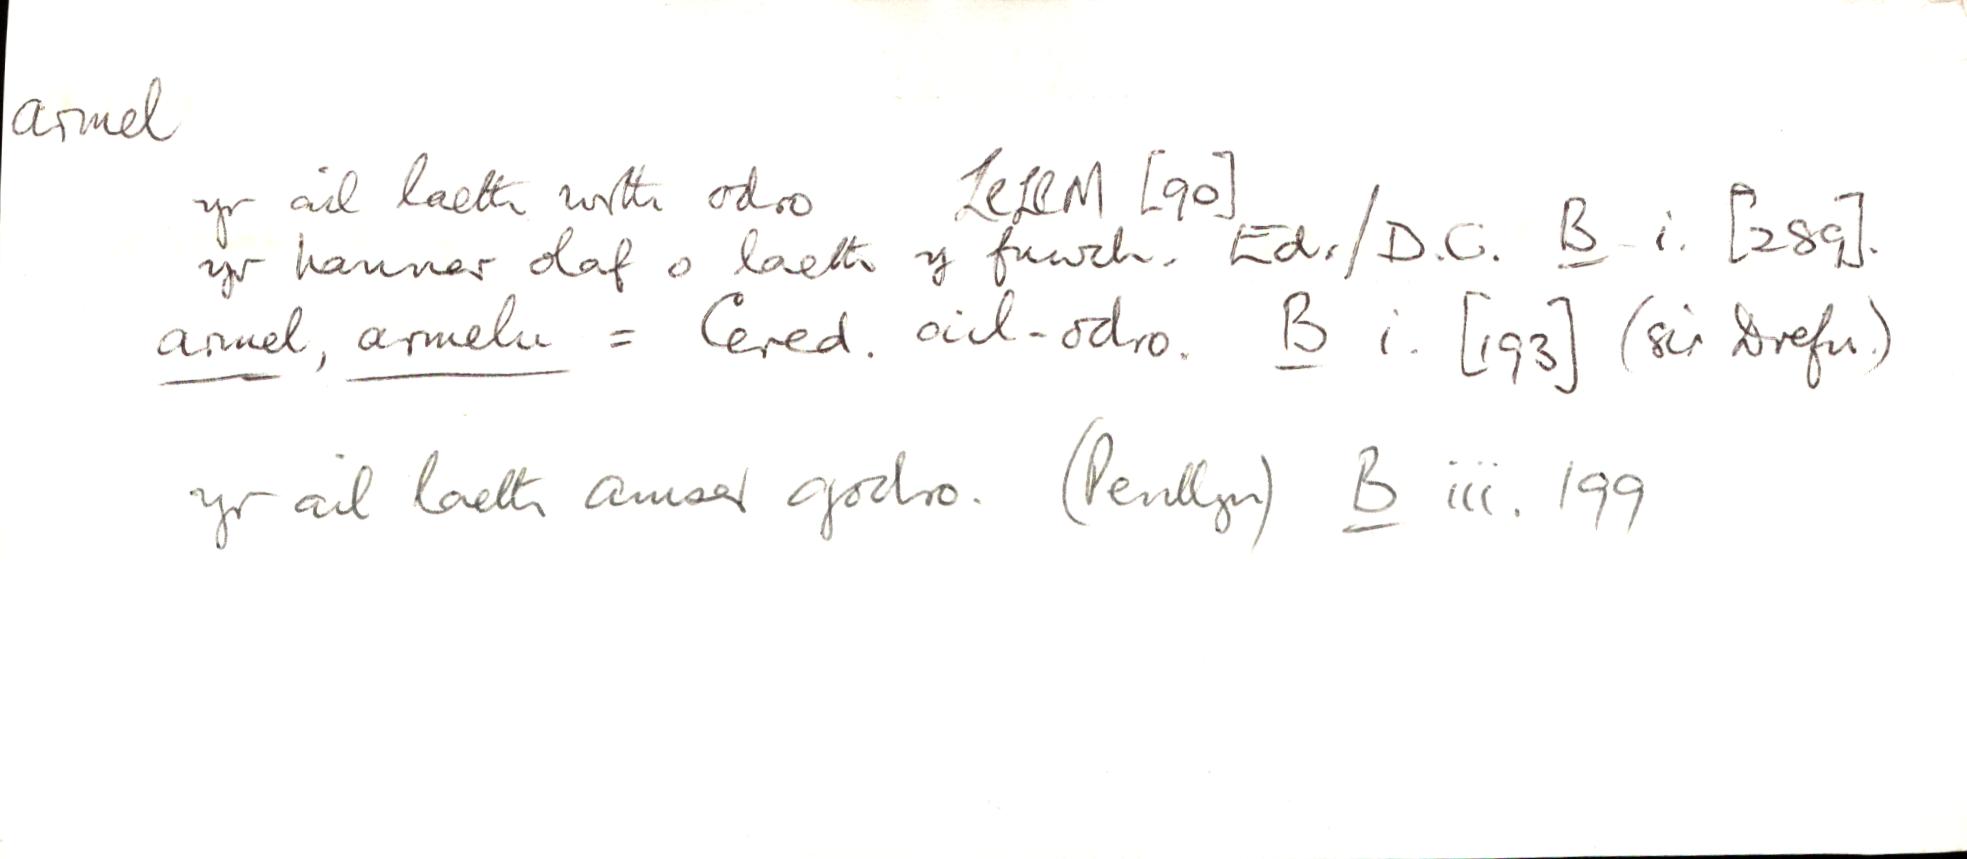 armel
yr ail laeth wrth odro LlLlM [90]
yr hanner olaf o laeth y fuwch. Ed./D.C. B i. [289].
armel, armelu = Cered. ail-odro. B i. [193] (sir Drefn.)
yr ail laeth amser godro. (Penllyn) B iii. 199